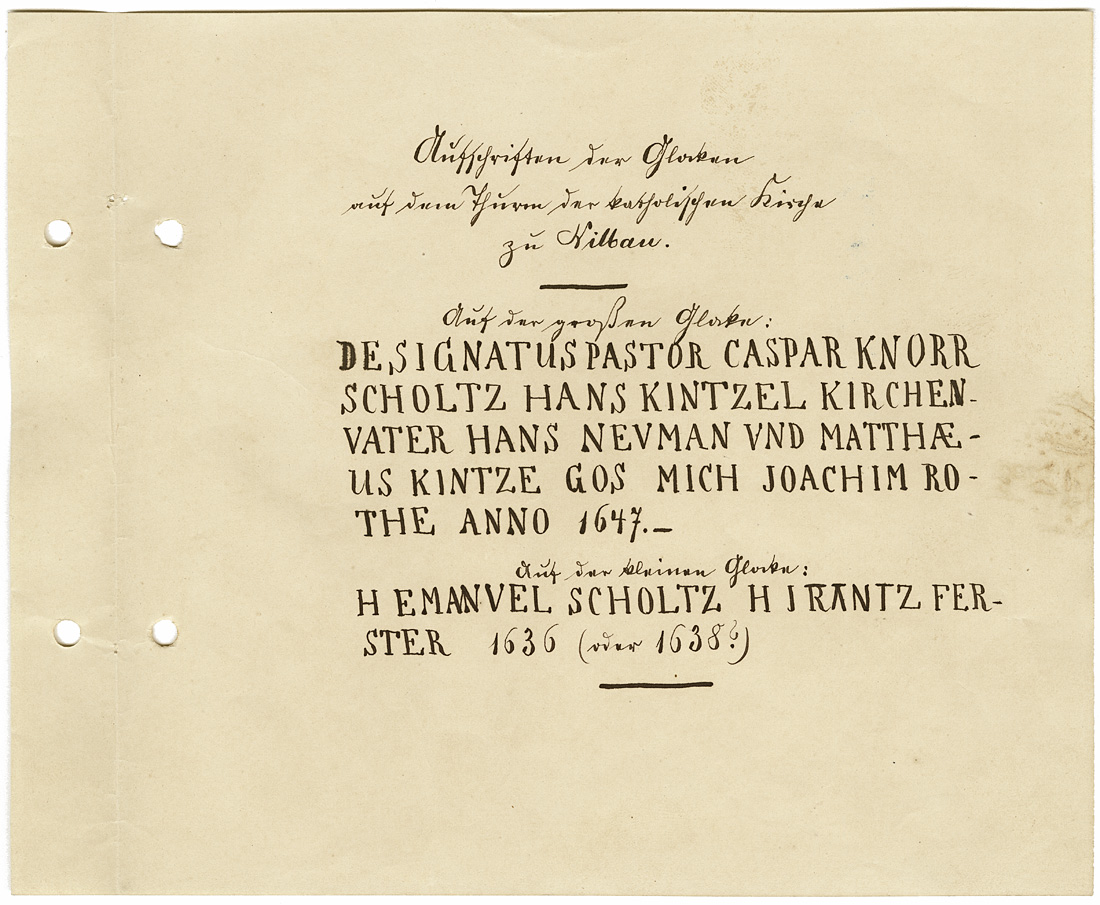 Aufschriften der Glocken
auf dem Thurm der katholischen Kirche
zu Nilbau.
Auf der großen Glocke:
DESIGNATUS PASTOR CASPAR KNORR
SCHOLTZ HANS KINTZEL KIRCHEN-
VATER HANS NEVMAN VND MATTHÆ-
US KINTZE GOS MICH JOACHIM RO-
THE ANNO 1647.—
Auf der kleinen Glocke:
H EMANVEL SCHOLTZ H IRANTZ FER-
STER 1636 (oder 1638?)